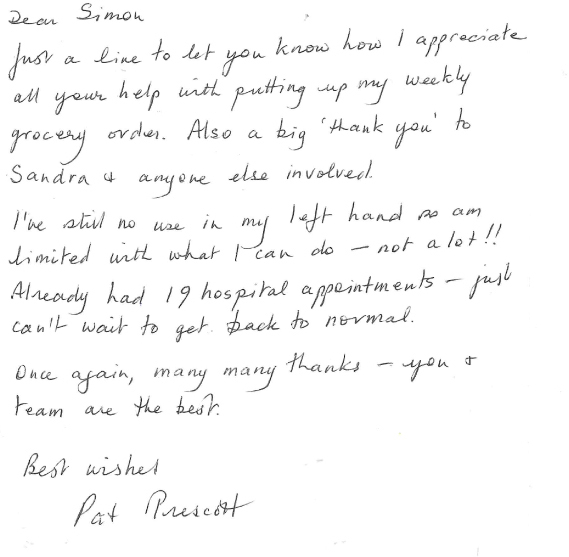 Dear Simon
Just a line to let you know how I appreciate
all your help with putting up my weekly
grocery order. Also a big 'thank you' to
Sandra & anyone else involved.
I've still no use in my left hand so am
limited with what I can do – not a lot!!
Already had 19 hospital appointments – just
can't wait to get back to normal.
Once again, many many thanks – you &
team are the best.
Best wishes
Pat Prescott